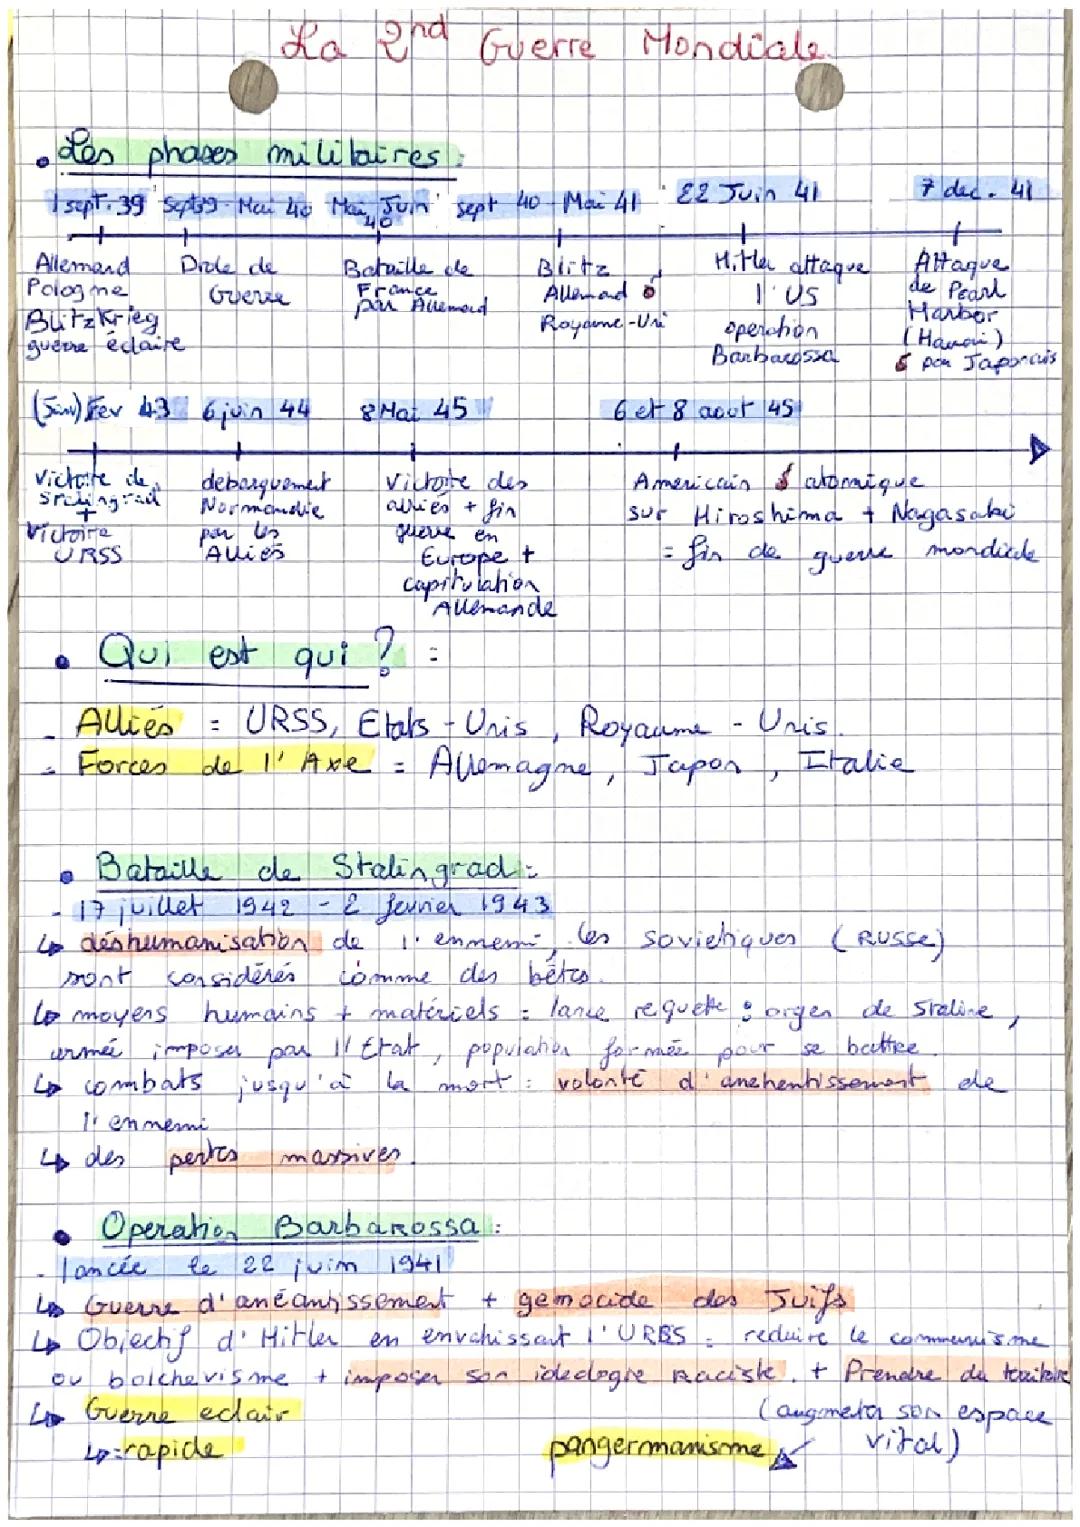 La 2nd Guerre Mondiale
• Les phases militaires :
1 sept. 39 Sept 39 - Mai 40 Mai Juin 40 sept 40 - Mai 41 22 Juin 41 7 dec. 41
Allemand Drole de Bataille de Blitz Hitler attaque Attaque
Pologne Guerre France Allemand l'US de Pearl
Blitzkrieg par Allemand Royaume-Uni operation Harbor
guerre éclaire Barbarossa (Hawaï)
par Japonais
(Janv) Fev 43 6 juin 44 8 Mai 45 6 et 8 aout 45
Victoire de debarquement Victoire des Americain atomique
Stalingrad Normandie alliés + fin sur Hiroshima + Nagasaki
+ par les guerre en = fin de guerre mondiale
Victoire Alliés Europe +
URSS capitulation
Allemande
• Qui est qui ? :
- Alliés = URSS, Etats - Unis, Royaume - Unis.
- Forces de l'Axe = Allemagne, Japon, Italie
• Bataille de Stalingrad :
- 17 juillet 1942 - 2 fevrier 1943
↳ déshumanisation de l'ennemi, les sovietiques (RUSSE)
sont considérés comme des bêtes.
↳ moyens humains + matériels : lance requete : orgen de Staline,
armée imposer par l'Etat, population formée pour se battre.
↳ combats jusqu'à la mort : volonté d'anehentissement de
l'ennemi
↳ des pertes massives.
• Operation Barbarossa :
- lancée le 22 juin 1941
↳ Guerre d'anéantissement + gemocide des Juifs
↳ Objectif d'Hitler en envahissant l'URSS : reduire le communisme
ou bolchevisme + imposer son ideologie Raciste. + Prendre du territoire
↳ Guerre eclair (augmeter son espace
↳ = rapide pangermanisme vital)